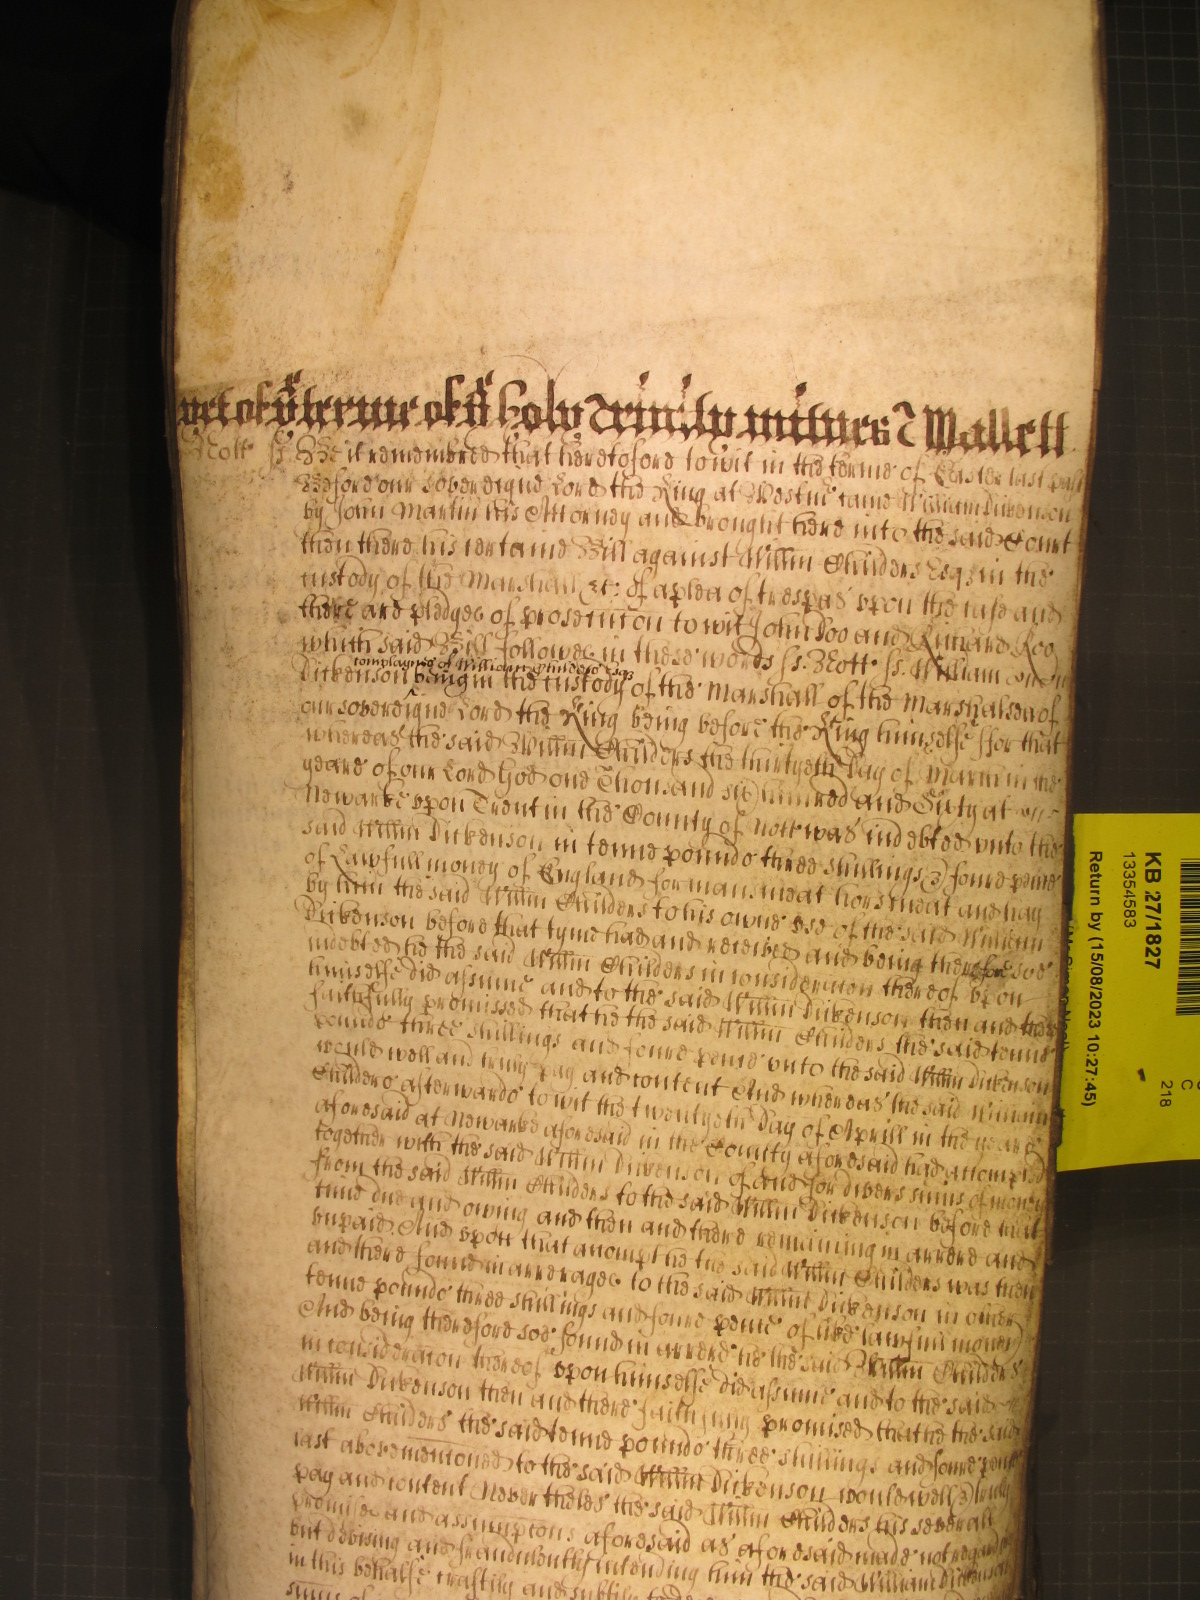 yet of yͤ terme of yͤ holy Trinity witnes Mallett
Nott ss. Be it remembred that heretofore to wit in the terme of Easter last past
Before our Sovereigne Lord the King at Westmr came William Dickenson
by John Martin his Attorney and brought here into the said Court
then there his certaine Bill against Willm Childers Esqr in the
custody of the Marshall &c: of a plea of trespas upon the case and
there are pledges of prosecucon to wit John Doo and Richard Roo
which said Bill followes in these words ss. Nott ss. William
complaynes of William Childers Esqr
Dickenson being in the custody of the Marshall of the Marshalsea of
our Sovereigne Lord the King being before the King himselfe ffor that
whereas the said Willm Childers the thirtyeth Day of March in the
yeare of our Lord God one Thousand six hundred and Sixty at
Newarke upon Trent in the County of Nott was indebted unto the
said Willm Dickenson in tenne pounds three shillings & foure pence
of Lawfull money of England for mans meat hors meat and hay
by him the said Willm Childers to his owne use of the said William
Dickenson before that tyme had and received and being therefore soe
indebted he the said Willm Childers in consideracon thereof upon
himselfe did assume and to the said Willm Dickenson then and there
faithfully promissed that he the said Willm Childers the said tenne
pounds three shillings and foure pence unto the said Willm Dickenson
would well and truly pay and content And whereas the said William
Childers afterwards to wit the twentyeth Day of Aprill in the yeare
aforesaid at Newarke aforesaid in the County aforesaid had accompted
together with the said Willm Dickenson of and for divers sums of money
from the said Willm Childers to the said Willm Dickenson before that
time due and owing and then and there remaining in arrere and
unpaid And upon that accompt he the said Willm Childers was then
and there found in arrerages to the said Willm Dickenson in other
tenne pounds three shillings and foure pence of like lawfull money
And being therefore soe found in arrere he the said Willm Childers
in consideracon thereof upon himselfe did assume and to the said
Willm Dickenson then and there faithfully promised that he the said
Willm Childers the said tenne pounds three shillings and foure pence
last abovemencioned to the said Willm Dickenson would well & truly
pay and content Nevertheles the said Willm Childers his severall
promises and assumptons aforesaid as aforesaid made not regarding
but devising and fraudulently intending him the said William Dickenson
in this behalfe craftily and subtily
sums of
KB 27/1827
13354583
Return by (15/08/2023 10:27:45)
C
218